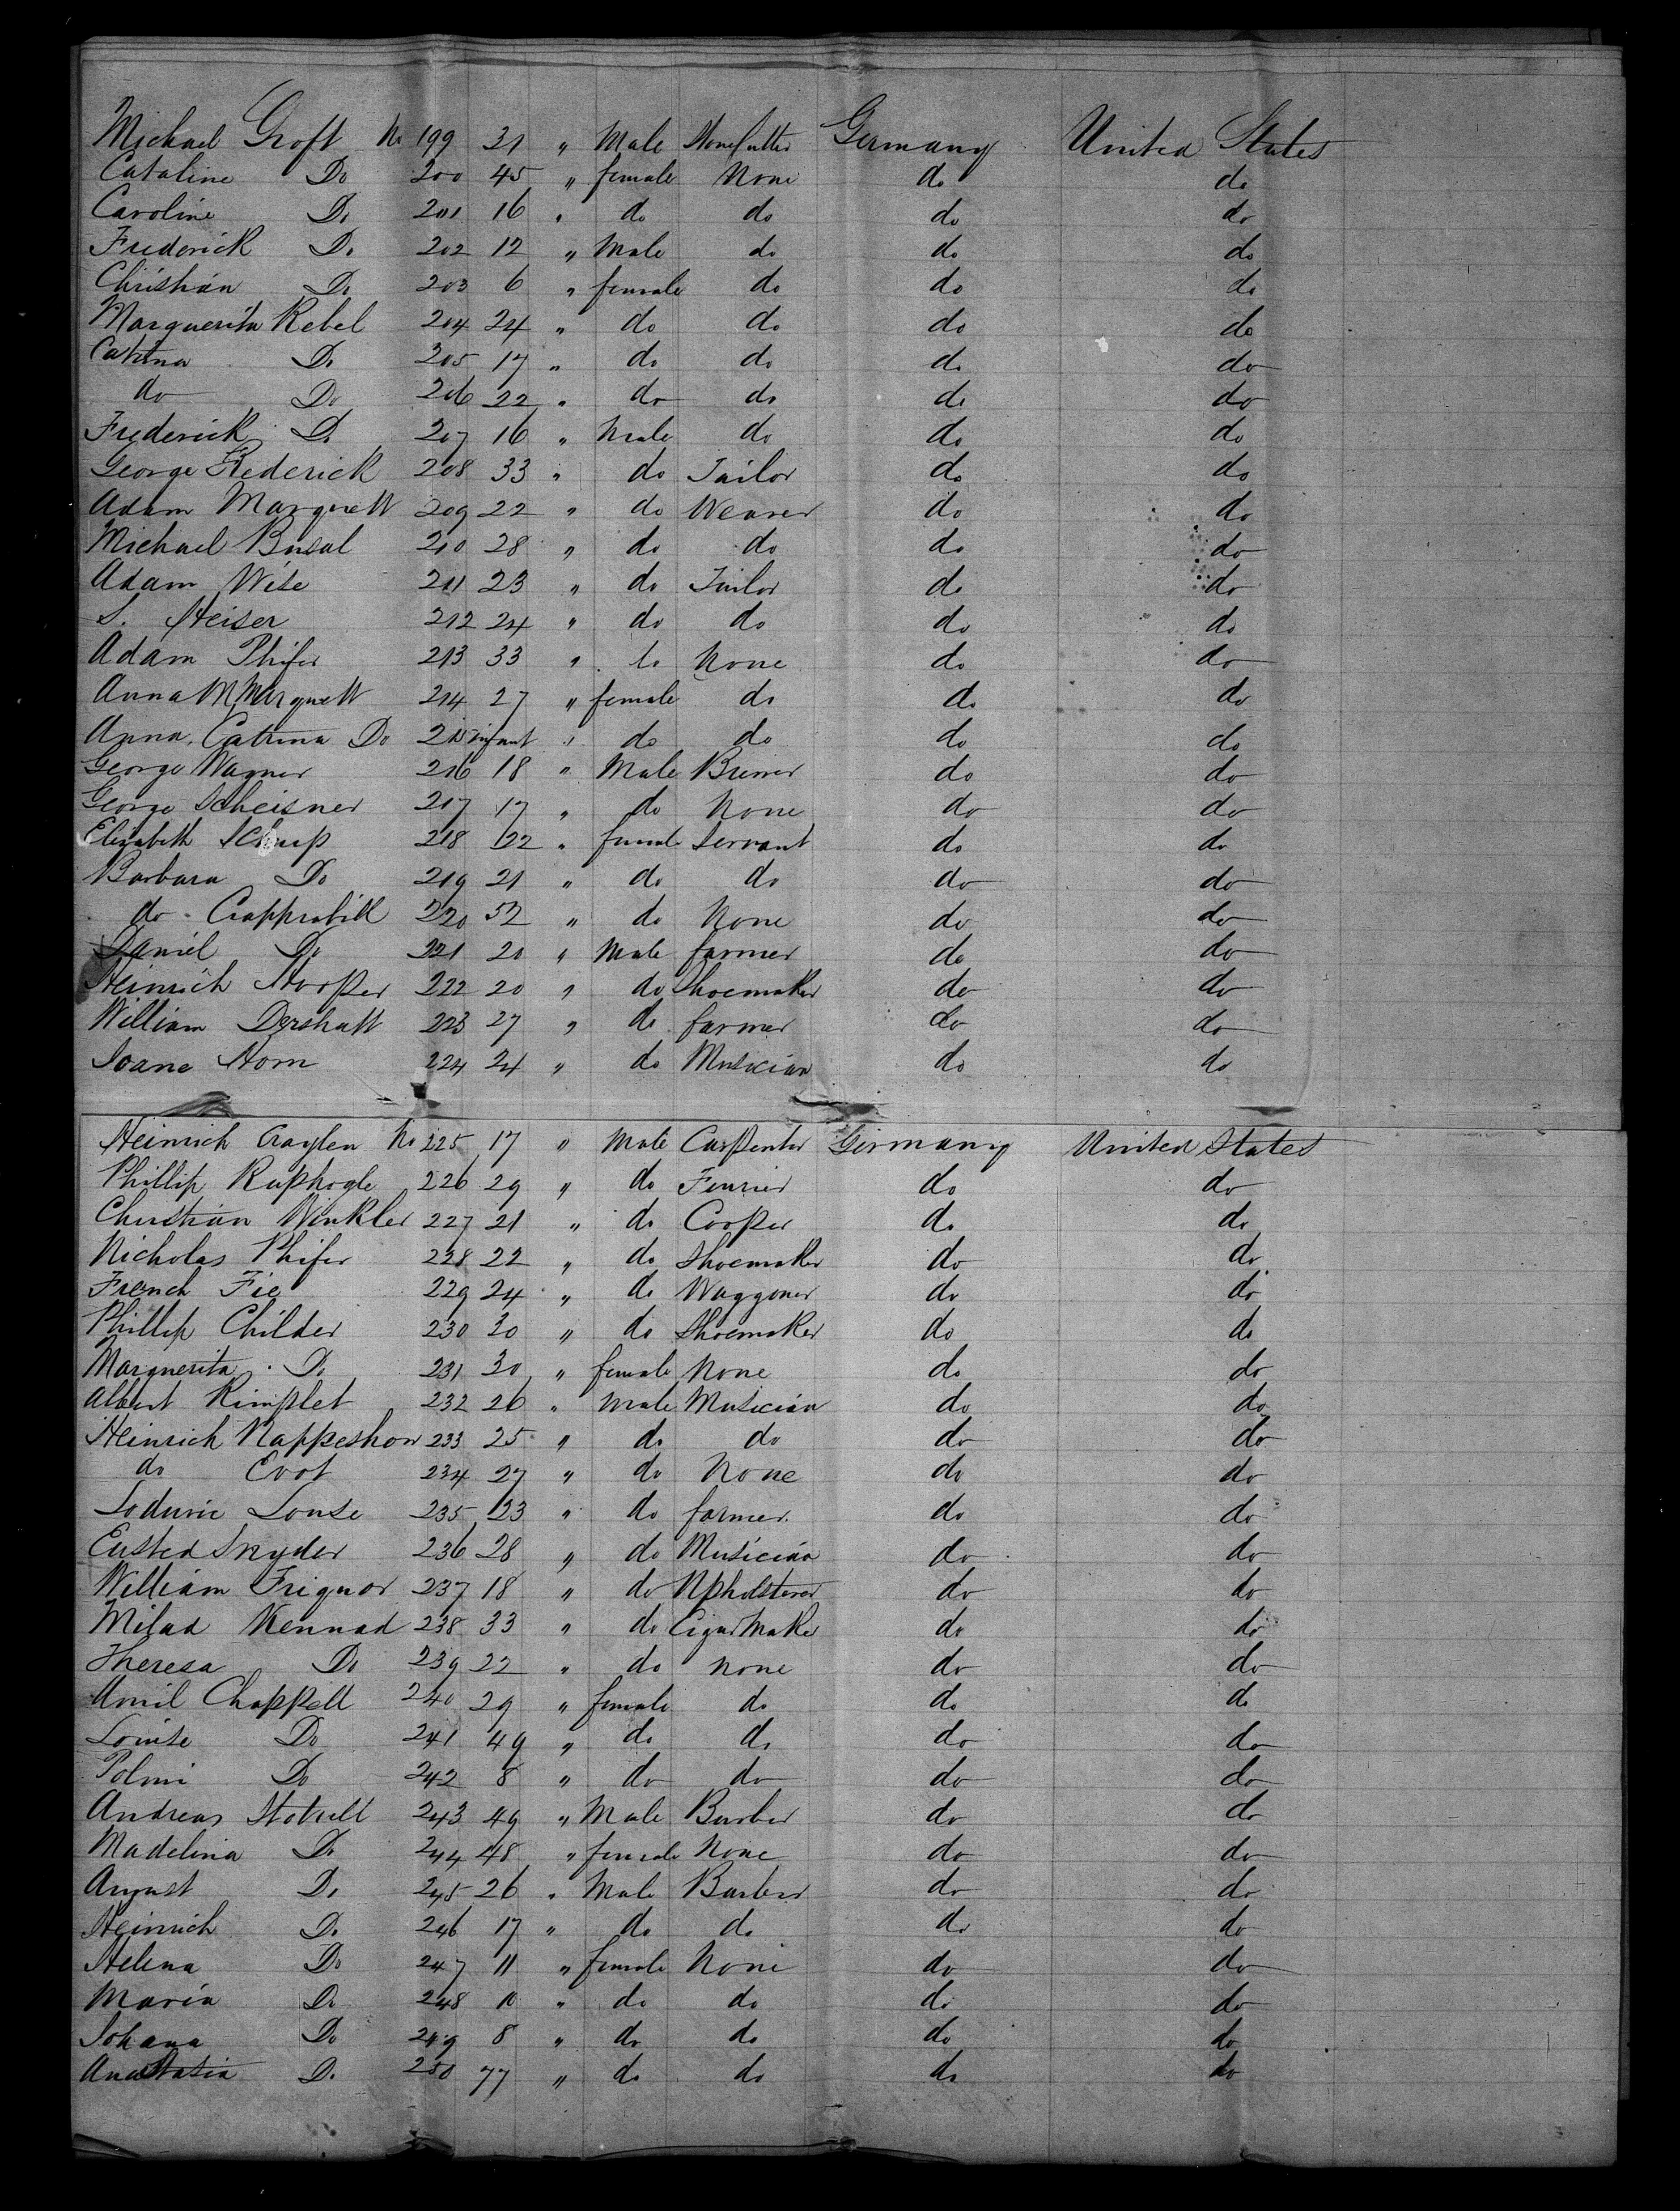 Michael Groft No 199 31 " Male Stonecutter Germany United States
Cataline Do 200 45 " female None do do
Caroline Do 201 16 " do do do do
Frederick Do 202 12 " Male do do do
Christian Do 203 6 " female do do do
Marguerita Rebel 204 24 " do do do do
Catrina Do 205 17 " do do do do
do Do 206 22 " do do do do
Frederick Do 207 16 " Male do do do
George Frederick 208 33 " do Tailor do do
Adam Marquett 209 22 " do Weaver do do
Michael Busal 210 28 " do do do do
Adam Wise 211 23 " do Tailor do do
S. Heiser 212 24 " do do do do
Adam Phifer 213 33 " do None do do
Anna M Marquett 214 27 " female do do do
Anna Catrina Do 215 infant " do do do do
George Wagner 216 18 " Male Brewer do do
George Scheisner 217 17 " do None do do
Elizabeth 218 22 " female Servant do do
Barbara Do 219 21 " do do do do
do 220 52 " do None do do
Daniel Do 221 20 " Male farmer do do
Heinrich Hooper 222 20 " do Shoemaker do do
William Dershatt 223 27 " do farmer do do
Horn 224 24 " do Musician do do
Heinrich Crayten No 225 17 " Male Carpenter Germany United States
Phillip Ruphogle 226 29 " do do do
Christian Winkler 227 21 " do Cooper do do
Nicholas Phifer 228 22 " do Shoemaker do do
French Fie 229 24 " do Waggoner do do
Phillip Childer 230 30 " do Shoemaker do do
Marguerita Do 231 30 " female None do do
Albert Rimplet 232 26 " Male Musician do do
Heinrich Nappeshon 233 25 " do do do do
do Evot 234 27 " do None do do
Louse 235 23 " do farmer do do
Snyder 236 28 " do Musician do do
William Friguor 237 18 " do Upholsterer do do
Milad Kennad 238 33 " do Cigar Maker do do
Theresa Do 239 22 " do none do do
Chappell 240 29 " female do do do
Louise Do 241 49 " do do do do
Polmi Do 242 8 " do do do do
Andreas 243 49 " Male Barber do do
Madelina Do 244 48 " female None do do
August Do 245 26 " Male Barber do do
Heinrich Do 246 17 " do do do do
Helena Do 247 11 " female None do do
Maria Do 248 10 " do do do do
Johana Do 249 8 " do do do do
Anastasia Do 250 77 " do do do do